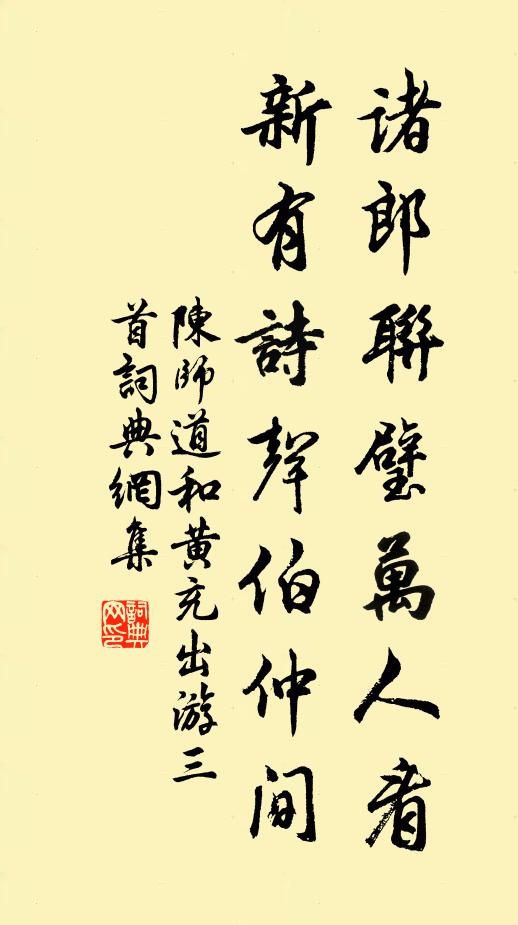 諸郎聯璧萬人看
新有詩聲伯仲間
陳師道和黃充出游三
首詞典網集
詞典网印